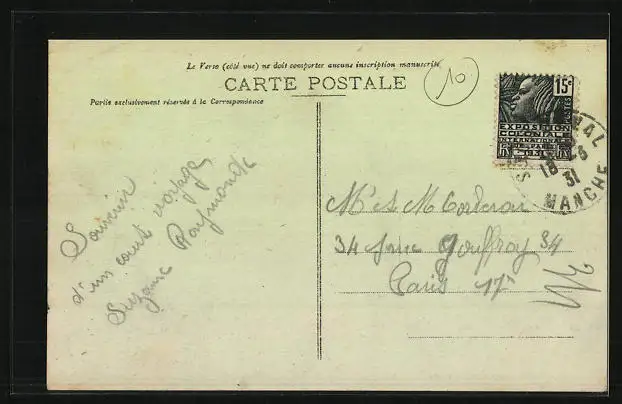 Le Verso (côté vue) ne doit comporter aucune inscription manuscrite
CARTE POSTALE
Partie exclusivement réservée à la Correspondance
10
15c
POSTES
EXPOSITION
COLONIALE
INTERNATIONALE
PARIS 1931
18
31
MANCHE
Souvenir
d'un court voyage
Suzanne Raymonde
M et M
34 rue Jouffroy 34
Paris 17e